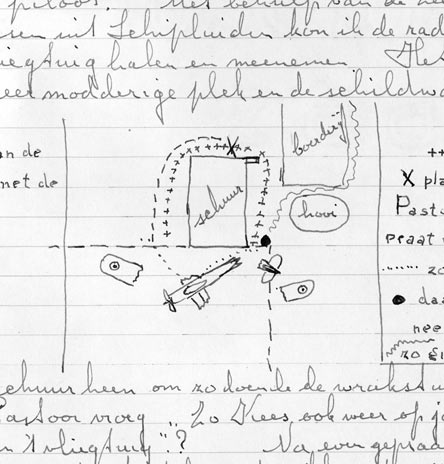 piloot. Het beroep van de
uit Schipluiden kon ik de rad
vliegtuig halen en meenemen Het
eer modderige plek en de schildwa
an de
met de
schuur
boerderij
hooi
++
X pla
Past
praat
...... zo
● daa
nee
zo
schuur heen om zo doende de wrakstu
Pastoor vroeg „ Zo Kees ook weer op j
n 't vliegtuig "? Na even gepraa